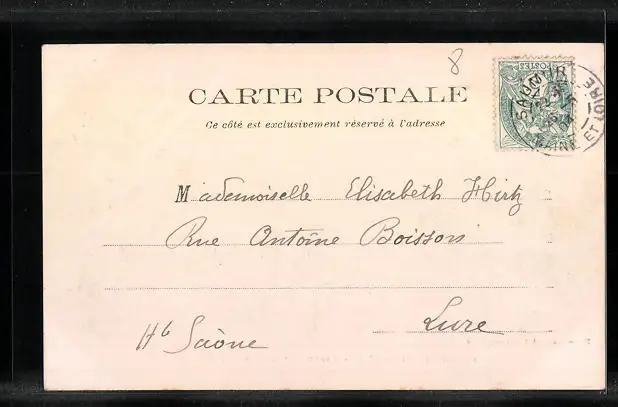 8
CARTE POSTALE
Ce côté est exclusivement réservé à l'adresse
POSTES
SAUMUR
MAINE ET LOIRE
Mademoiselle Elisabeth Hirtz
Rue Antoine Boisson
Lure
Hte Saône